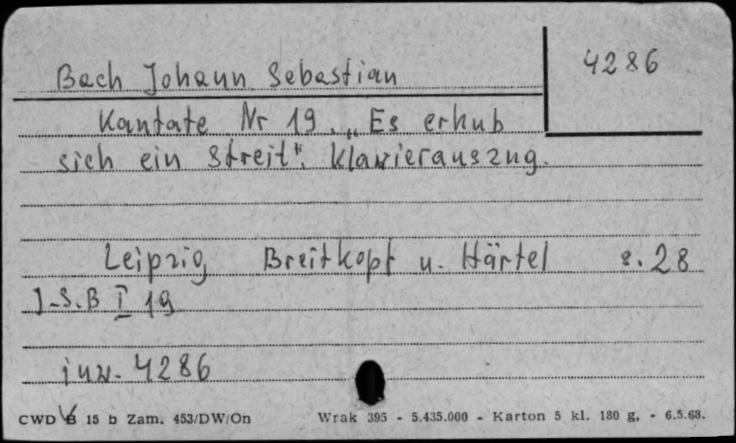 4286
Bach Johann Sebastian
Kantate Nr 19. „Es erhub
sich ein Streit". Klavierauszug.
Leipzig Breitkopf u. Härtel s. 28
J.S.B I 19
inw. 4286
CWD B 15 b Zam. 453/DW/On Wrak 395 - 5.435.000 - Karton 5 kl. 180 g. - 6.5.68.